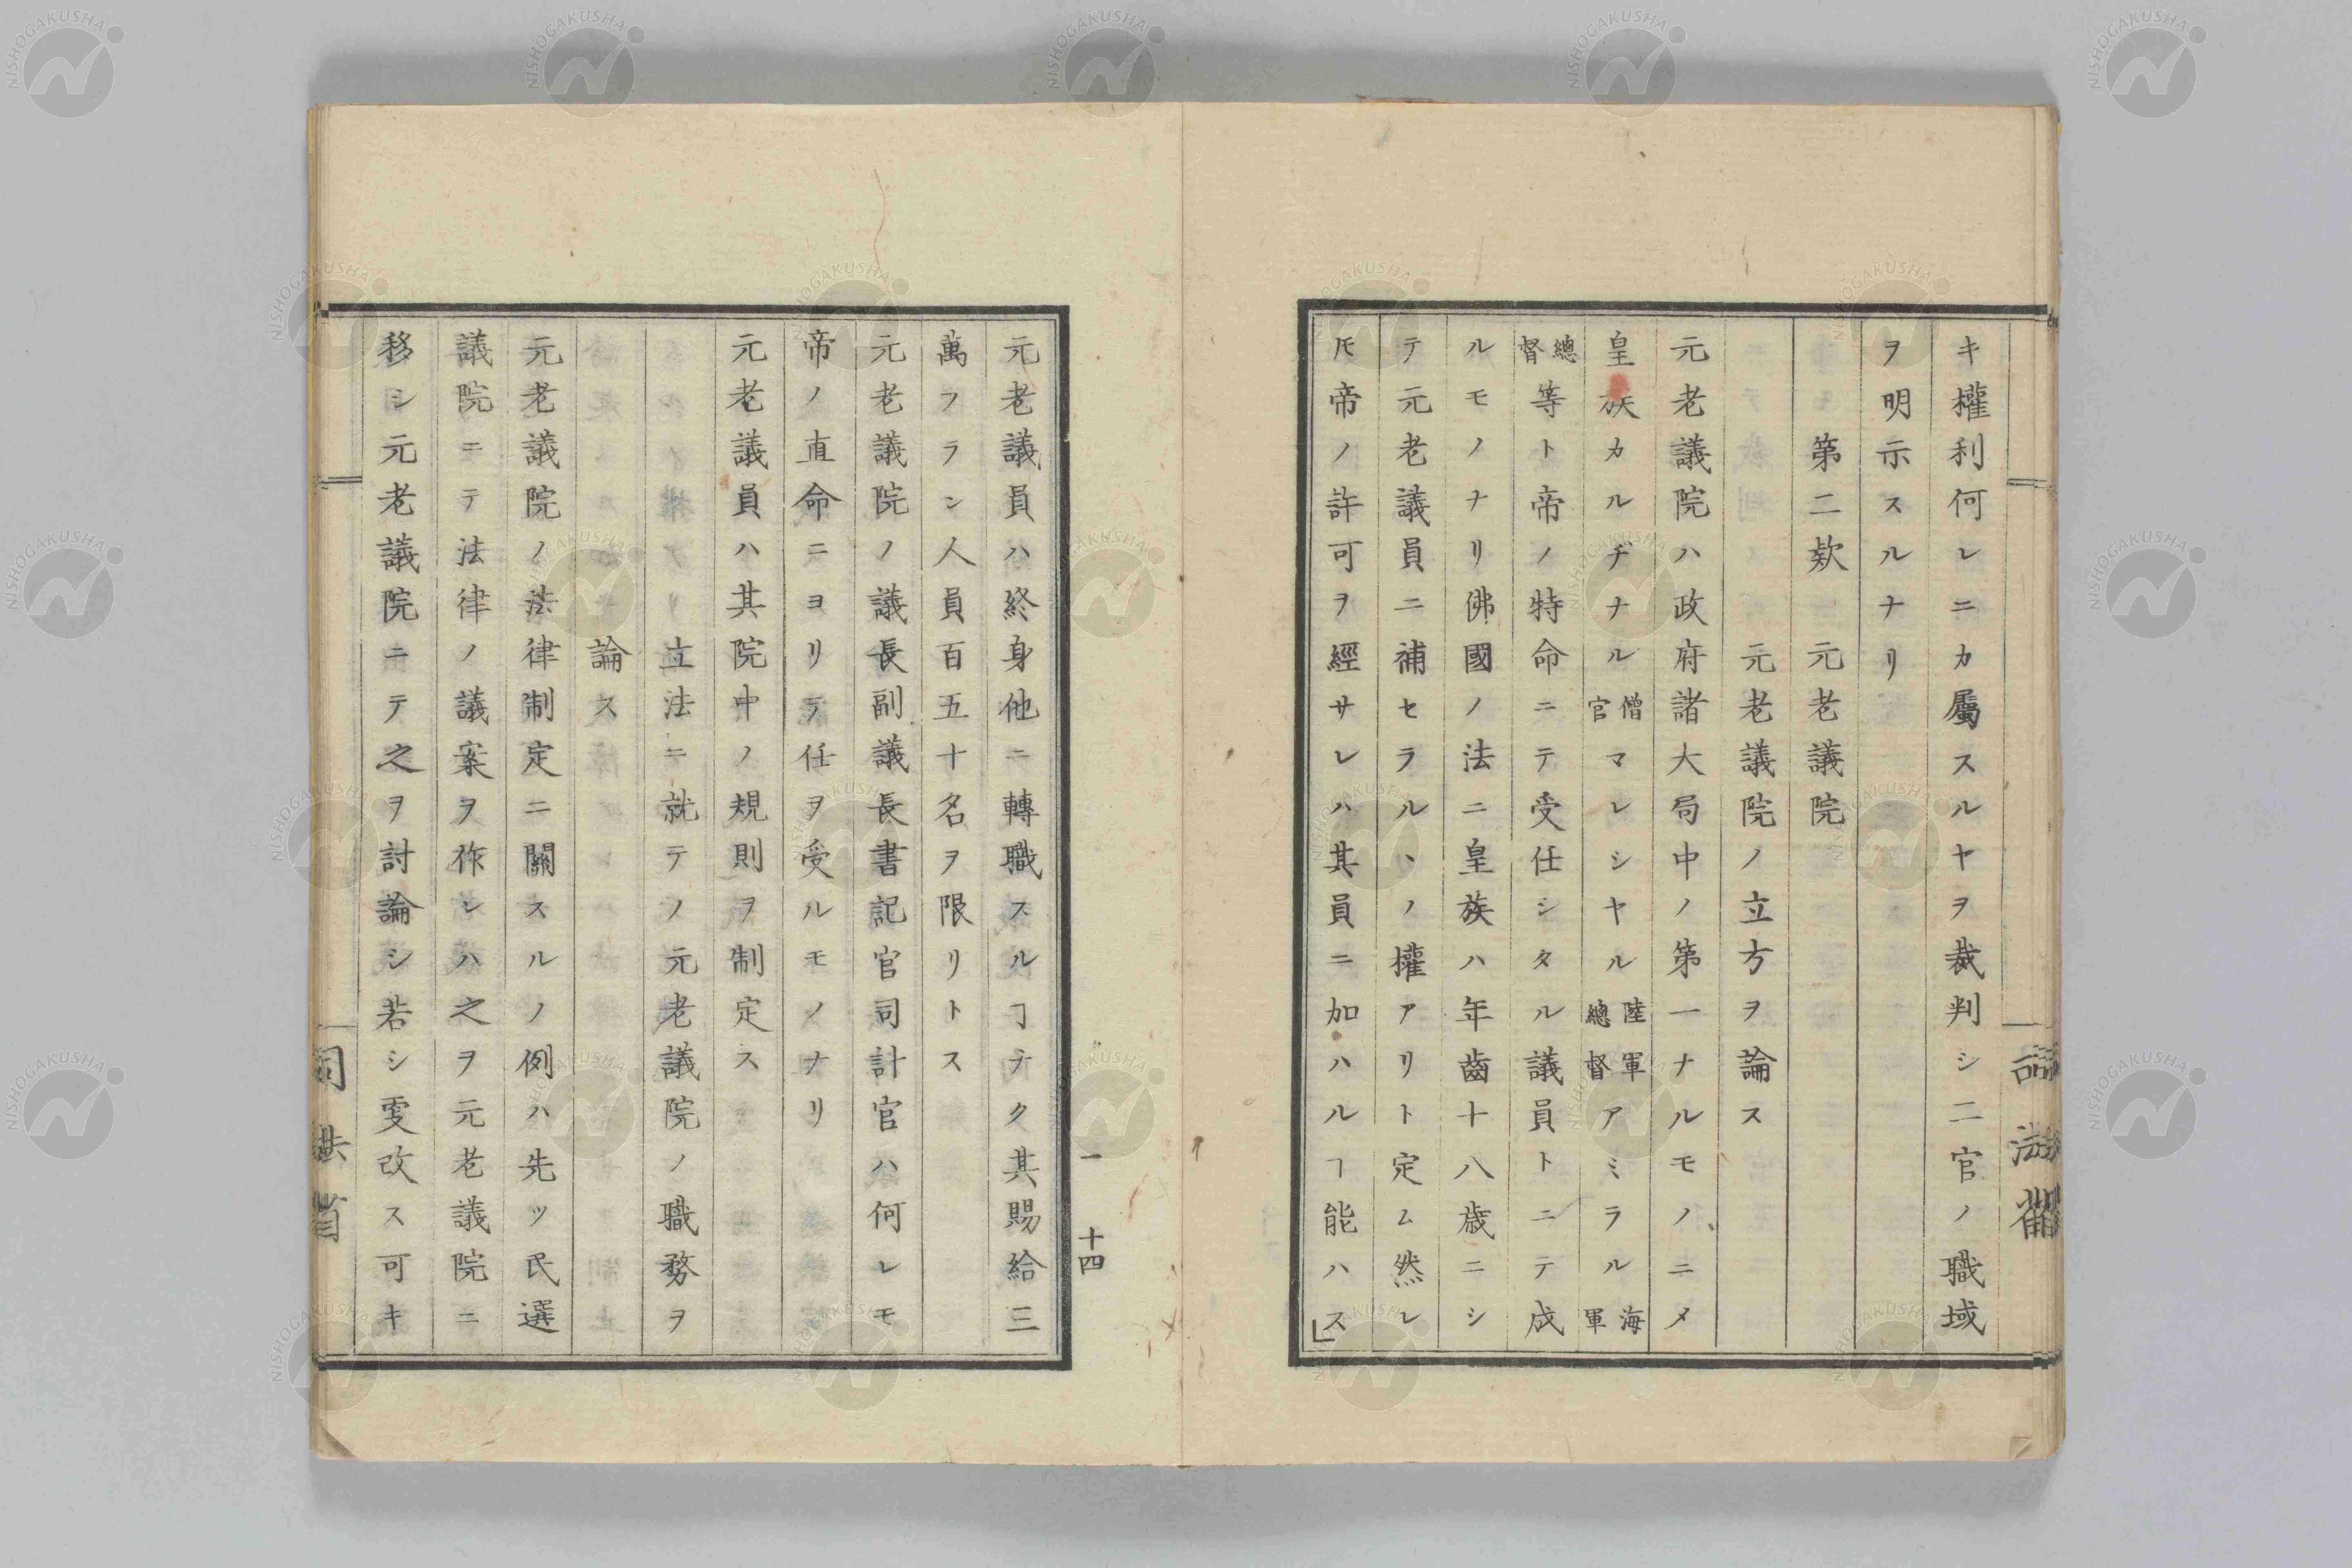 キ權利何レニカ屬スルヤヲ裁判シ二官ノ職域
ヲ明示スルナリ
第二款 元老議院
元老議院ノ立方ヲ論ス
元老議院ハ政府諸大局中ノ第一ナルモノニメ
皇族カルヂナル僧官マレシヤル陸軍總督アミラル海軍
總督等ト帝ノ特命ニテ受任シタル議員トニテ成
ルモノナリ佛國ノ法ニ皇族ハ年齒十八歳ニシ
テ元老議員ニ補セラルヽノ權アリト定ム然レ
𪜈帝ノ許可ヲ經サレハ其員ニ加ハルヿ能ハス
司法省
元老議員ハ終身他ニ轉職スルヿナク其賜給三
萬フラン人員百五十名ヲ限リトス
元老議院ノ議長副議長書記官司計官ハ何レモ
帝ノ直命ニヨリテ任ヲ受ルモノナリ
元老議員ハ其院中ノ規則ヲ制定ス
立法ニ就テノ元老議院ノ職務ヲ
論ス
元老議院ノ法律制定ニ關スルノ例ハ先ツ民選
議院ニテ法律ノ議案ヲ作レハ之ヲ元老議院ニ
移シ元老議院ニテ之ヲ討論シ若シ更改ス可キ
一 十四
司法省
NISHOGAKUSHA